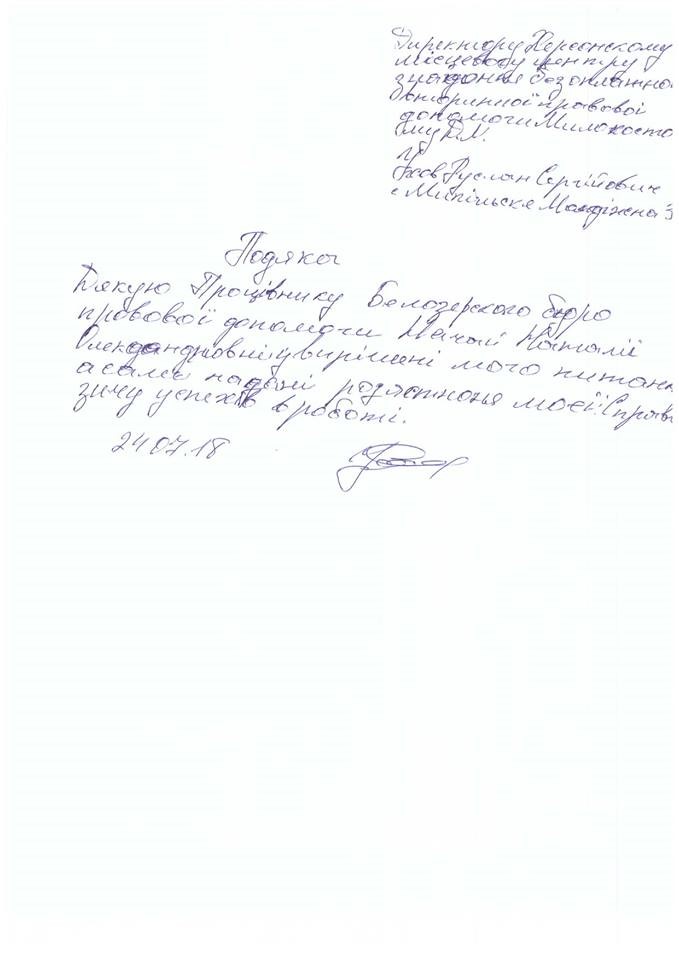 Директору Херсонскому
місцевому центру
з надання безоплатно
вторинної правової
допомоги Милокосто
ому Д.М.
Руслан Сергійович
с
Подяка
Дякую Працівнику Белозерского бюро
правової допомоги Наталії
вирішені мого питан
а саме надані роз'яснення моєї Справи
зичу успехів в роботі.
24 07.18